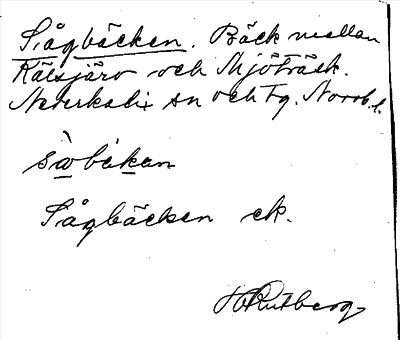 Sågbäcken. Bäck mellan
Kälsjärv och Mjöträsk.
Nederkalix sn och Tg. Norrb. l.
sẁbekan
Sågbäcken ek.
H Rutberg